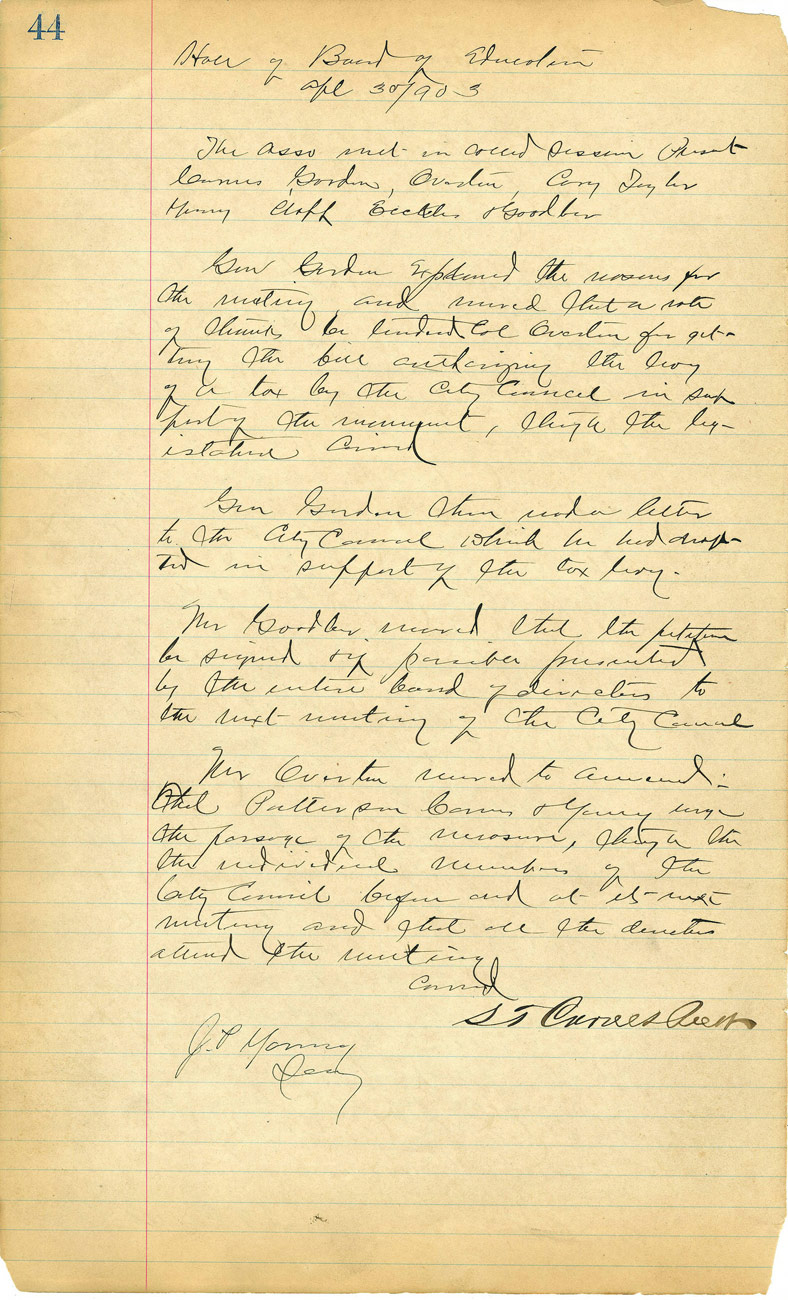 44
Hall of Board of Education
Apl 30/903
The Asso met in called session Present
Carnes Gordon, Overton, Cary Taylor
Young Clapp Eccles & Goodbar
Gen Gordon Explained the reasons for
the meeting and moved that a vote
of thanks be tendered Col Overton for get-
ting the bill authorizing the levy
of a tax by the City Council in sup
port of the monument, through the leg-
islature Carried
Gen Gordon then read a letter
to the City Council which he had draf-
ted in support of the tax levy.
Mr Goodbar moved that the petition
be signed & if possible presented
by the entire board of directors to
the next meeting of the City Council
Mr Overton moved to amend:
That Patterson Carnes & Young urge
the passage of the measure, through the
the individual members of the
City Council before and at its next
meeting and that all the directors
attend the meeting
Carried
S T Carnes Prest
J. P. Young
Secy